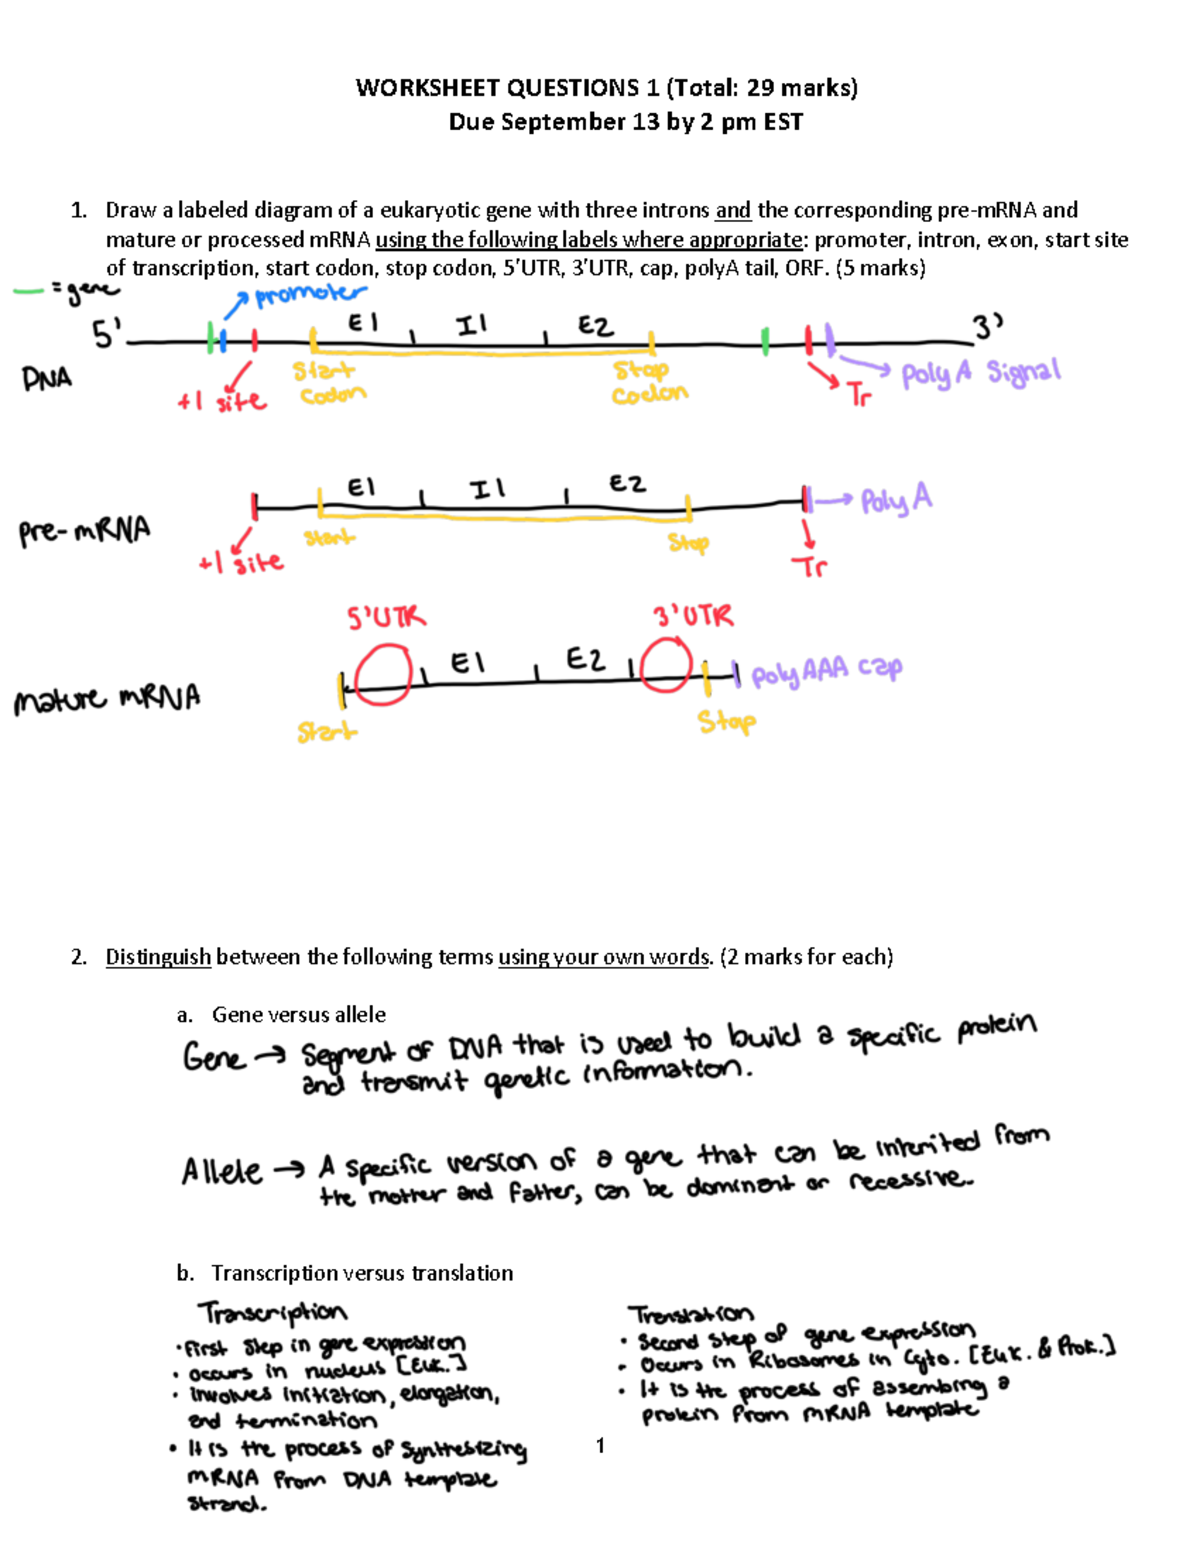 WORKSHEET QUESTIONS 1 (Total: 29 marks)
Due September 13 by 2 pm EST
1. Draw a labeled diagram of a eukaryotic gene with three introns and the corresponding pre-mRNA and
mature or processed mRNA using the following labels where appropriate: promoter, intron, exon, start site
of transcription, start codon, stop codon, 5'UTR, 3'UTR, cap, polyA tail, ORF. (5 marks)
= gene
promoter
5' E1 I1 E2 3'
DNA
+1 site
Start
Codon
Stop
Codon
Tr
Poly A Signal
E1 I1 E2
Poly A
Pre-mRNA
+1 site
Start
Stop
Tr
5'UTR 3'UTR
E1 E2
poly AAA cap
Mature mRNA
Start
Stop
2. Distinguish between the following terms using your own words. (2 marks for each)
a. Gene versus allele
Gene → Segment of DNA that is used to build a specific protein
and transmit genetic information.
Allele → A specific version of a gene that can be inherited from
the mother and father, can be dominant or recessive.
b. Transcription versus translation
Transcription
• First step in gene expression
• occurs in nucleus [Euk.]
• involves initiation, elongation,
and termination
• It is the process of synthesizing
mRNA from DNA template
strand.
Translation
• Second step of gene expression
• Occurs in Ribosomes in Cyto. [Euk. & Prok.]
• It is the process of assembing a
protein from mRNA template
1